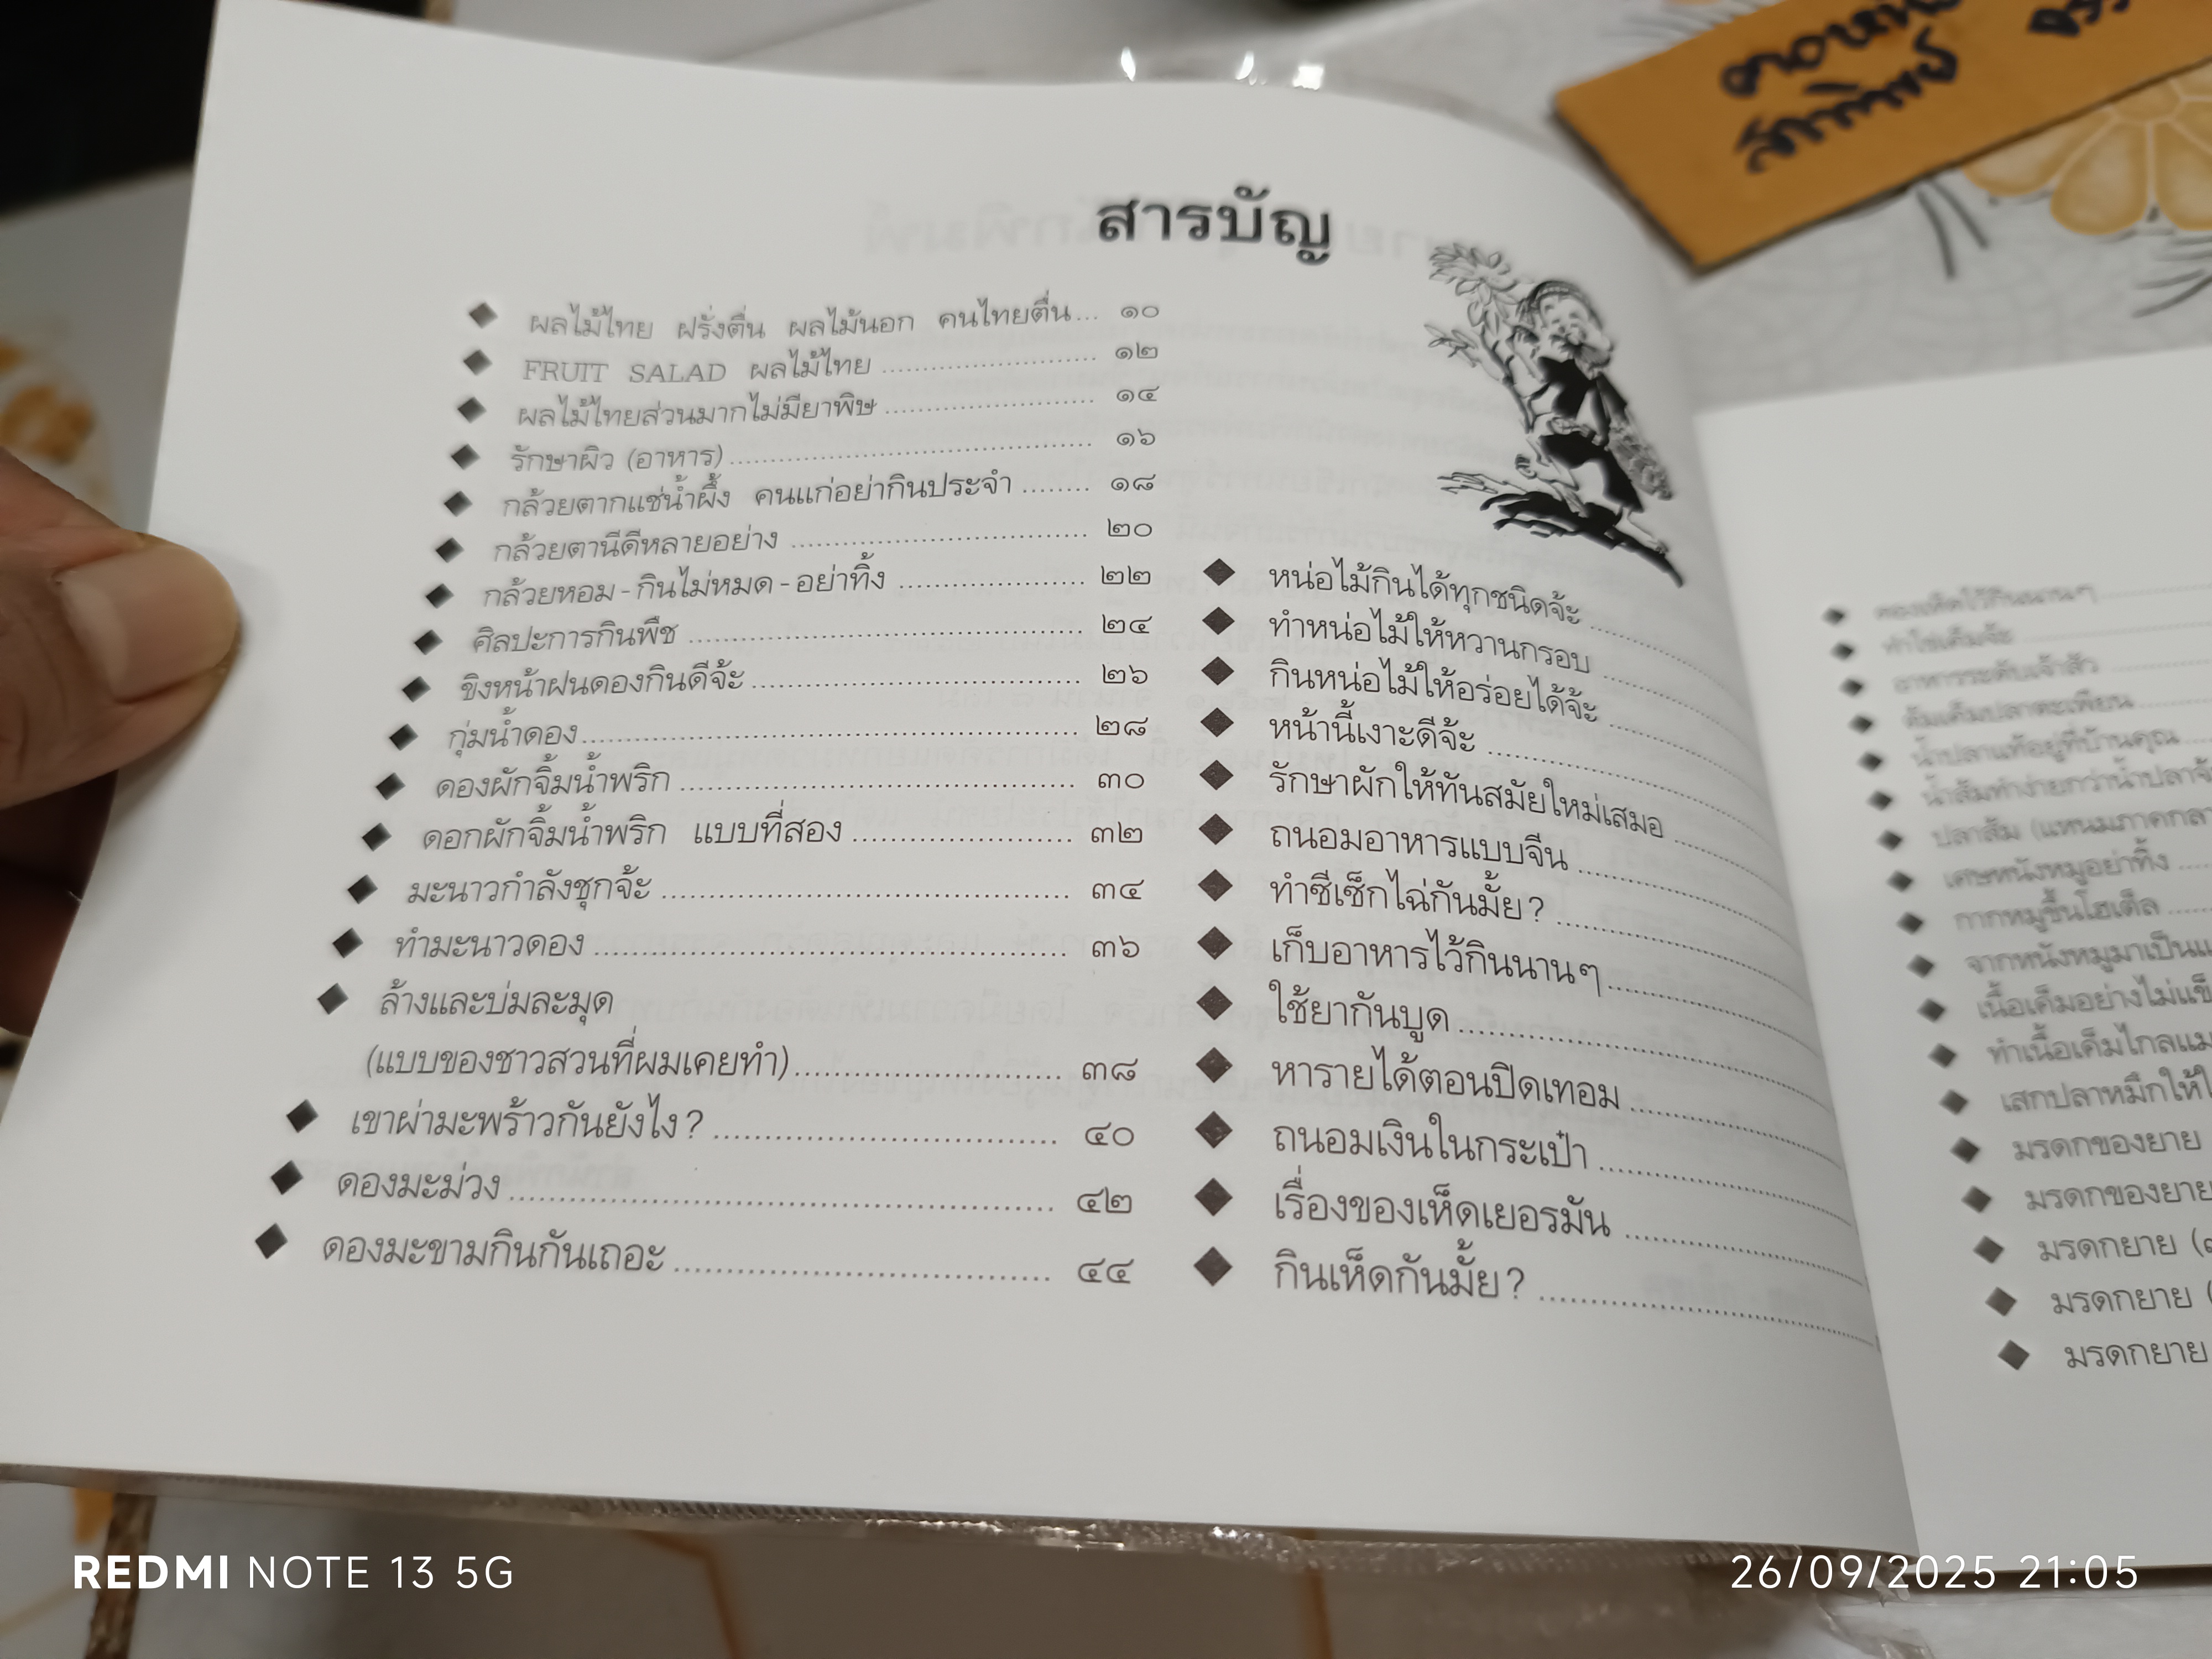 สารบัญ
◆ ผลไม้ไทย ฝรั่งตื่น ผลไม้นอก คนไทยตื่น... ๑๐
◆ FRUIT SALAD ผลไม้ไทย ๑๒
◆ ผลไม้ไทยส่วนมากไม่มียาพิษ ๑๔
◆ รักษาผิว (อาหาร) ๑๖
◆ กล้วยตากแช่น้ำผึ้ง คนแก่อย่ากินประจำ ๑๘
◆ กล้วยตานีดีหลายอย่าง ๒๐
◆ กล้วยหอม - กินไม่หมด - อย่าทิ้ง ๒๒
◆ ศิลปะการกินพืช ๒๔
◆ ขิงหน้าฝนดองกินดีจ้ะ ๒๖
◆ กุ่มน้ำดอง ๒๘
◆ ดองผักจิ้มน้ำพริก ๓๐
◆ ดอกผักจิ้มน้ำพริก แบบที่สอง ๓๒
◆ มะนาวกำลังชุกจ้ะ ๓๔
◆ ทำมะนาวดอง ๓๖
◆ ล้างและบ่มละมุด
(แบบของชาวสวนที่ผมเคยทำ) ๓๘
◆ เขาผ่ามะพร้าวกันยังไง ? ๔๐
◆ ดองมะม่วง ๔๒
◆ ดองมะขามกินกันเถอะ ๔๔
◆ หน่อไม้กินได้ทุกชนิดจ้ะ
◆ ทำหน่อไม้ให้หวานกรอบ
◆ กินหน่อไม้ให้อร่อยได้จ้ะ
◆ หน้านี้เงาะดีจ้ะ
◆ รักษาผักให้ทันสมัยใหม่เสมอ
◆ ถนอมอาหารแบบจีน
◆ ทำซีเซ็กไฉ่กันมั้ย ?
◆ เก็บอาหารไว้กินนานๆ
◆ ใช้ยากันบูด
◆ หารายได้ตอนปิดเทอม
◆ ถนอมเงินในกระเป๋า
◆ เรื่องของเห็ดเยอรมัน
◆ กินเห็ดกันมั้ย ?
◆ ดองเห็ดไว้กินนานๆ
◆ ทำไข่เค็มจ้ะ
◆ อาหารระดับเจ้าสัว
◆ ต้มเค็มปลาตะเพียน
◆ น้ำปลาแท้อยู่ที่บ้านคุณ
◆ น้ำส้มทำง่ายกว่าน้ำปลา
◆ ปลาส้ม (แหนมภาคกลา
◆ เศษหนังหมูอย่าทิ้ง
◆ กากหมูขึ้นโฮเต็ล
◆ จากหนังหมูมาเป็นแ
◆ เนื้อเค็มอย่างไม่แข็
◆ ทำเนื้อเค็มไกลแม
◆ เสกปลาหมึกให้ใ
◆ มรดกของยาย
◆ มรดกของยาย
◆ มรดกยาย (
◆ มรดกยาย (
◆ มรดกยาย
REDMI NOTE 13 5G
26/09/2025 21:05